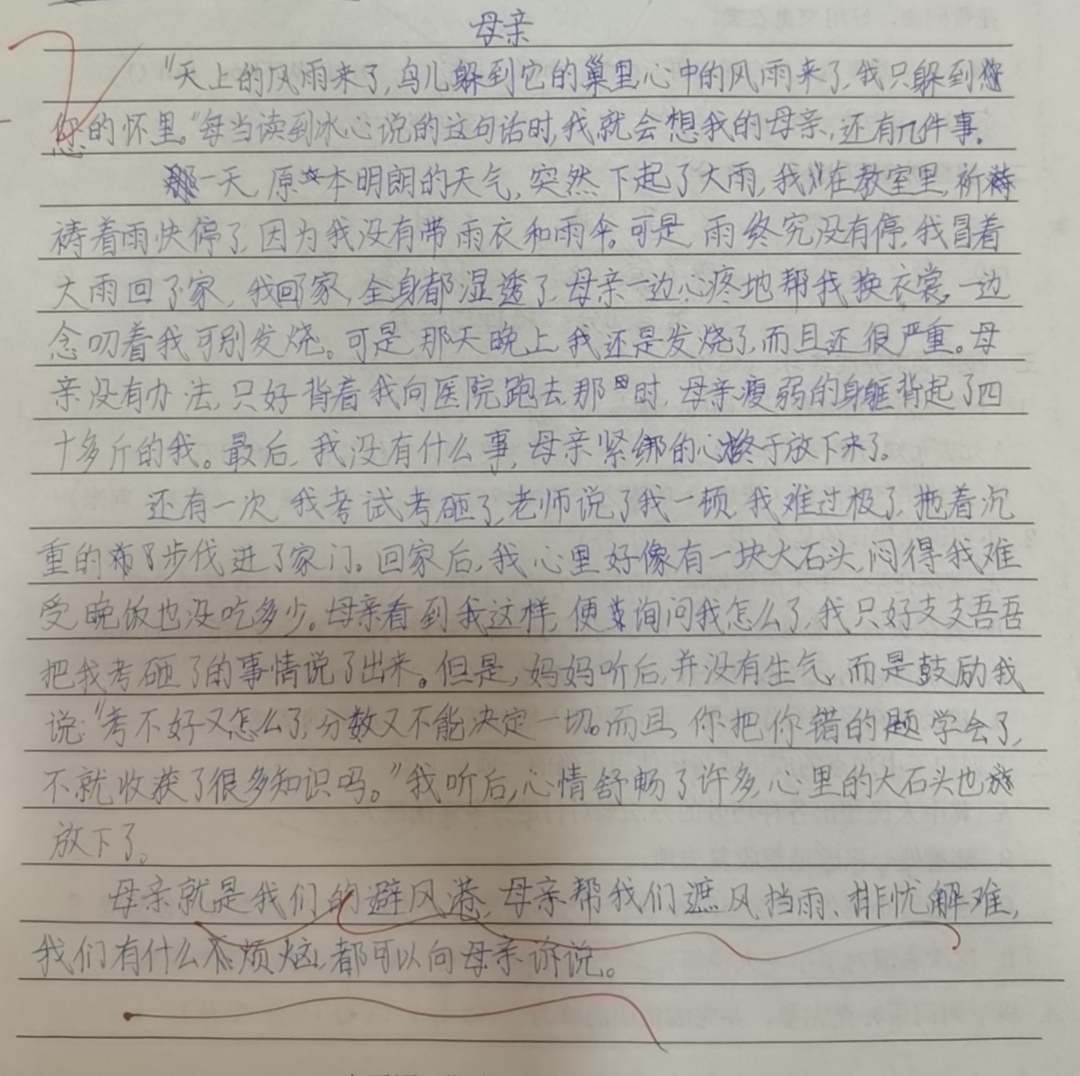 母亲
"天上的风雨来了,鸟儿躲到它的巢里心中的风雨来了,我只躲到
您的怀里。"每当读到冰心说的这句话时,我就会想我的母亲,还有几件事。
那一天,原本明朗的天气,突然下起了大雨,我在教室里,祈
祷着雨快停了,因为我没有带雨衣和雨伞。可是,雨终究没有停,我冒着
大雨回了家,我回家,全身都湿透了,母亲一边心疼地帮我换衣裳,一边
念叨着我可别发烧。可是,那天晚上,我还是发烧了,而且还很严重。母
亲没有办法,只好背着我向医院跑去,那时,母亲瘦弱的身躯背起了四
十多斤的我。最后,我没有什么事,母亲紧绷的心终于放下来了。
还有一次,我考试考砸了,老师说了我一顿,我难过极了,拖着沉
重的步伐进了家门。回家后,我心里好像有一块大石头,闷得我难
受,晚饭也没吃多少。母亲看到我这样,便询问我怎么了,我只好支支吾吾
把我考砸了的事情说了出来。但是,妈妈听后,并没有生气,而是鼓励我
说:"考不好又怎么了,分数又不能决定一切。而且,你把你错的题学会了,
不就收获了很多知识吗。"我听后,心情舒畅了许多,心里的大石头也
放下了。
母亲就是我们的避风港,母亲帮我们遮风挡雨、排忧解难,
我们有什么烦恼都可以向母亲诉说。